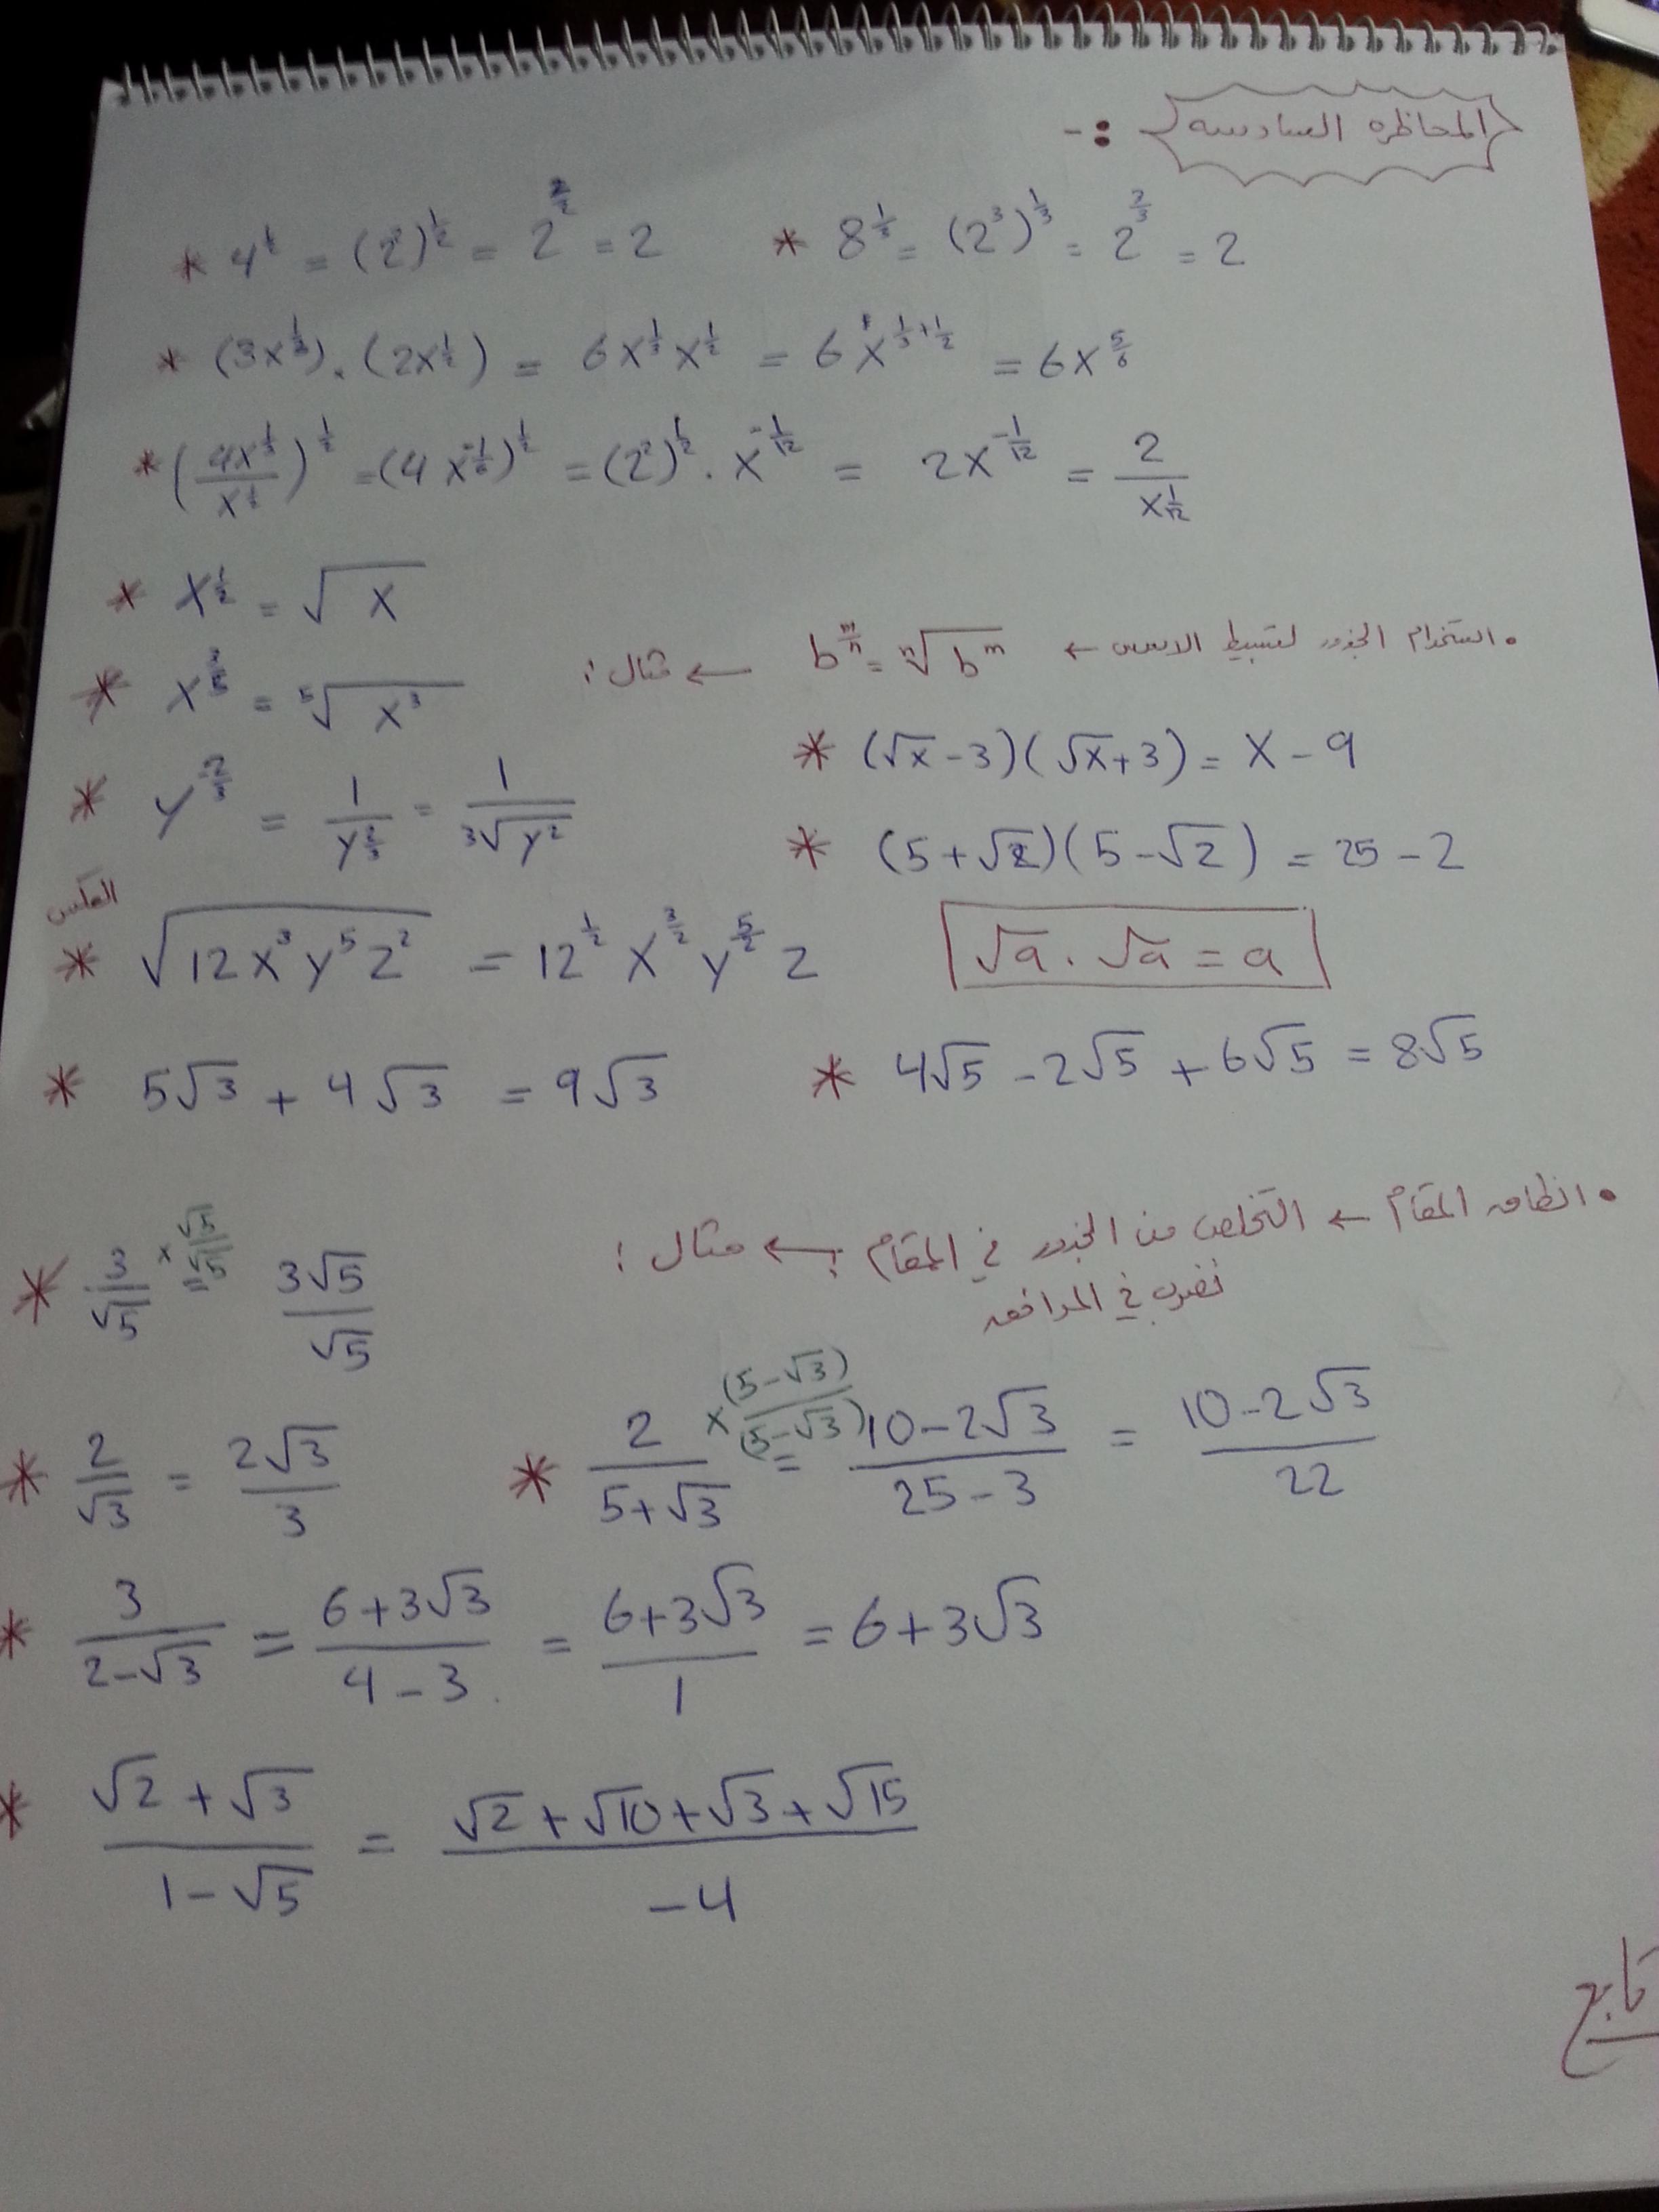 المحاظره السادسه :-
* 4^½ = (2²)^½ = 2^(2/2) = 2 * 8^⅓ = (2³)^⅓ = 2^(3/3) = 2
* (3x^⅓).(2x^½) = 6x^⅓ x^½ = 6x^(⅓+½) = 6x^(5/6)
* (4x^⅓ / x^½)^½ = (4x^(-1/6))^½ = (2²)^½ . x^(-1/12) = 2x^(-1/12) = 2 / x^(1/12)
* x^½ = √x
• استخدام الجذور لتبسيط الاسس ← b^(m/n) = ⁿ√(b^m) ← مثال :
* x^(3/5) = ⁵√(x³)
* (√x-3)(√x+3) = x-9
* y^(-2/3) = 1 / y^(2/3) = 1 / ³√(y²)
* (5+√2)(5-√2) = 25-2
العكس
* √(12x³y⁵z²) = 12^½ x^(3/2) y^(5/2) z
√a . √a = a
* 5√3 + 4√3 = 9√3 * 4√5 - 2√5 + 6√5 = 8√5
• انطاق المقام ← التخلص من الجذور في المقام ← مثال :
نضرب في المرافق
* 3/√5 × √5/√5 = 3√5 / √5
* 2/√3 = 2√3 / 3 * 2/(5+√3) × (5-√3)/(5-√3) = (10-2√3)/(25-3) = (10-2√3)/22
* 3/(2-√3) = (6+3√3)/(4-3) = (6+3√3)/1 = 6+3√3
* (√2+√3)/(1-√5) = (√2+√10+√3+√15)/-4
تابع